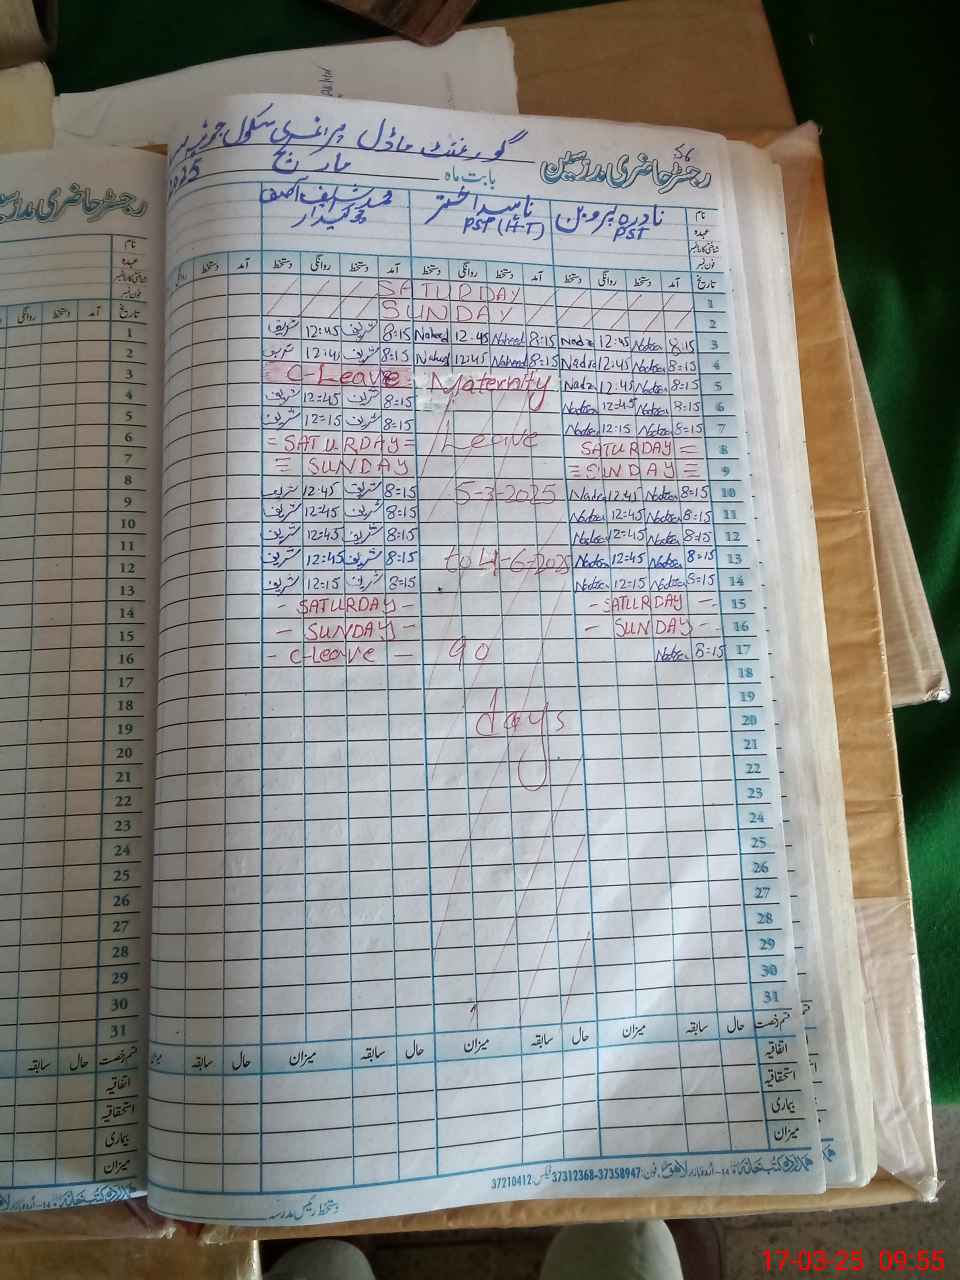 گورنمنٹ ماڈل پرائمری سکول
رجسٹر حاضری مدرسین
بابت ماہ مارچ 2025
نام نادرہ پروین ناہید اختر محمد شریف
عہدہ PST PST (H-T) چوکیدار
تاریخ آمد دستخط روانگی دستخط آمد دستخط روانگی دستخط آمد دستخط روانگی دستخط آمد دستخط روانگی
1 SATURDAY
2 SUNDAY
3 8=15 12:45 8=15 Naheed 12.45 Naheed 8=15 شریف 12:45 شریف
4 8=15 12:45 8=15 Naheed 12:45 8=15 شریف شریف
5 8=15 12:45 Maternity C-Leave
6 8=15 12=45 8=15 شریف 12=45 شریف
7 8=15 12:15 Leave 8=15 شریف 12=15 شریف
8 SATURDAY = SATURDAY =
9 SUNDAY SUNDAY
10 8=15 12:45 5-3-2025 8=15 شریف 12:45 شریف
11 8=15 12=45 8=15 شریف 12=45 شریف
12 8=15 12=45 8=15 شریف 12=45 شریف
13 8=15 12=45 to 4-6-2025 8=15 شریف 12=45 شریف
14 8=15 12=15 8=15 شریف 12=15 شریف
15 - SATURDAY - - SATURDAY -
16 - SUNDAY - - SUNDAY -
17 8=15 90 - C-Leave -
18
19
20 days
21
22
23
24
25
26
27
28
29
30
31
قسم رخصت حال سابقہ میزان حال سابقہ میزان حال سابقہ میزان حال سابقہ
اتفاقیہ
استحقاقیہ
بیماری
میزان
فون: 37358947-37312368 فیکس: 37210412
دستخط رئیس مدرسہ
رجسٹر حاضری مدرسین
نام
عہدہ
تاریخ آمد دستخط روانگی
1
2
3
4
5
6
7
8
9
10
11
12
13
14
15
16
17
18
19
20
21
22
23
24
25
26
27
28
29
30
31
قسم رخصت حال سابقہ
اتفاقیہ
استحقاقیہ
بیماری
میزان
17-03-25 09:55